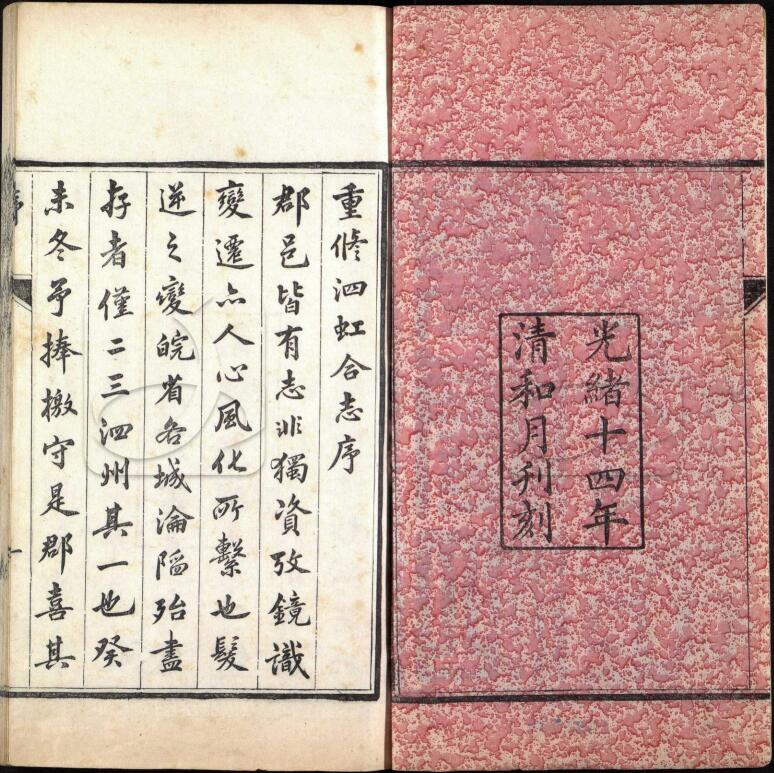 光緒十四年
清和月刋刻
重修泗虹合志序
郡邑皆有志非獨資攷鏡識
變遷亦人心風化所繫也髮
逆之變皖省各城淪陷殆盡
存者僅二三泗州其一也癸
未冬予捧檄守是郡喜其
一